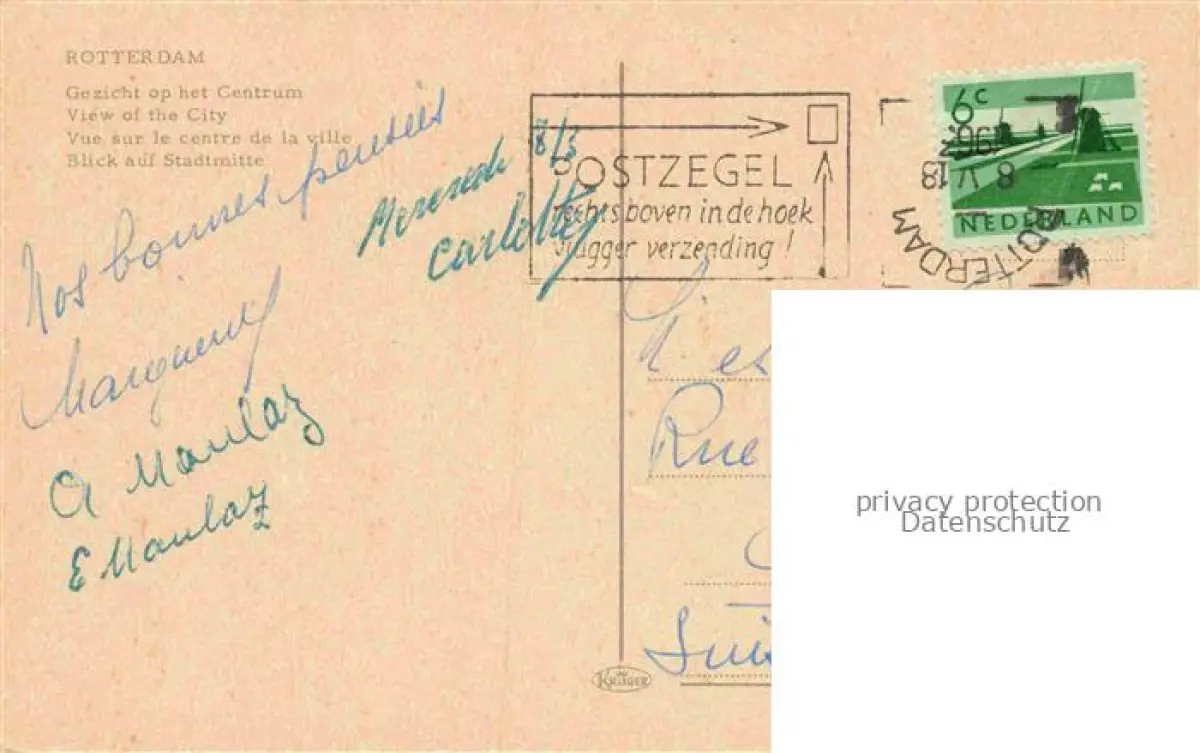 ROTTERDAM
Gezicht op het Centrum
View of the City
Vue sur le centre de la ville
Blick auf Stadtmitte
Nos bonnes pensées
A Maulaz
E Maulaz
POSTZEGEL
rechtsboven in de hoek
vlugger verzending!
6c
NEDERLAND
ROTTERDAM
8 V 18
1967
Rue
KRÜGER
privacy protection
Datenschutz